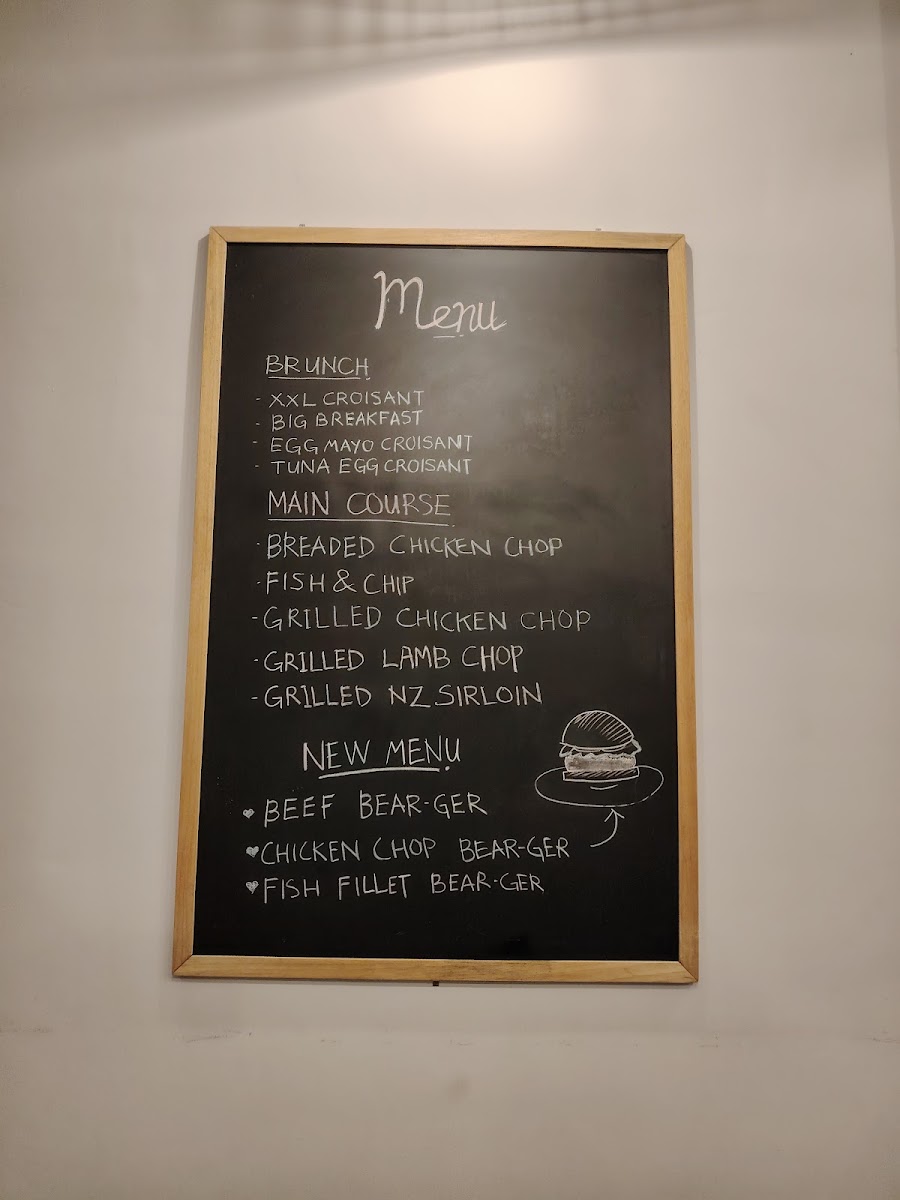 Menu
BRUNCH
- XXL CROISANT
- BIG BREAKFAST
- EGG MAYO CROISANT
- TUNA EGG CROISANT
MAIN COURSE
- BREADED CHICKEN CHOP
- FISH & CHIP
- GRILLED CHICKEN CHOP
- GRILLED LAMB CHOP
- GRILLED NZ SIRLOIN
NEW MENU
♥ BEEF BEAR-GER
♥ CHICKEN CHOP BEAR-GER
♥ FISH FILLET BEAR-GER